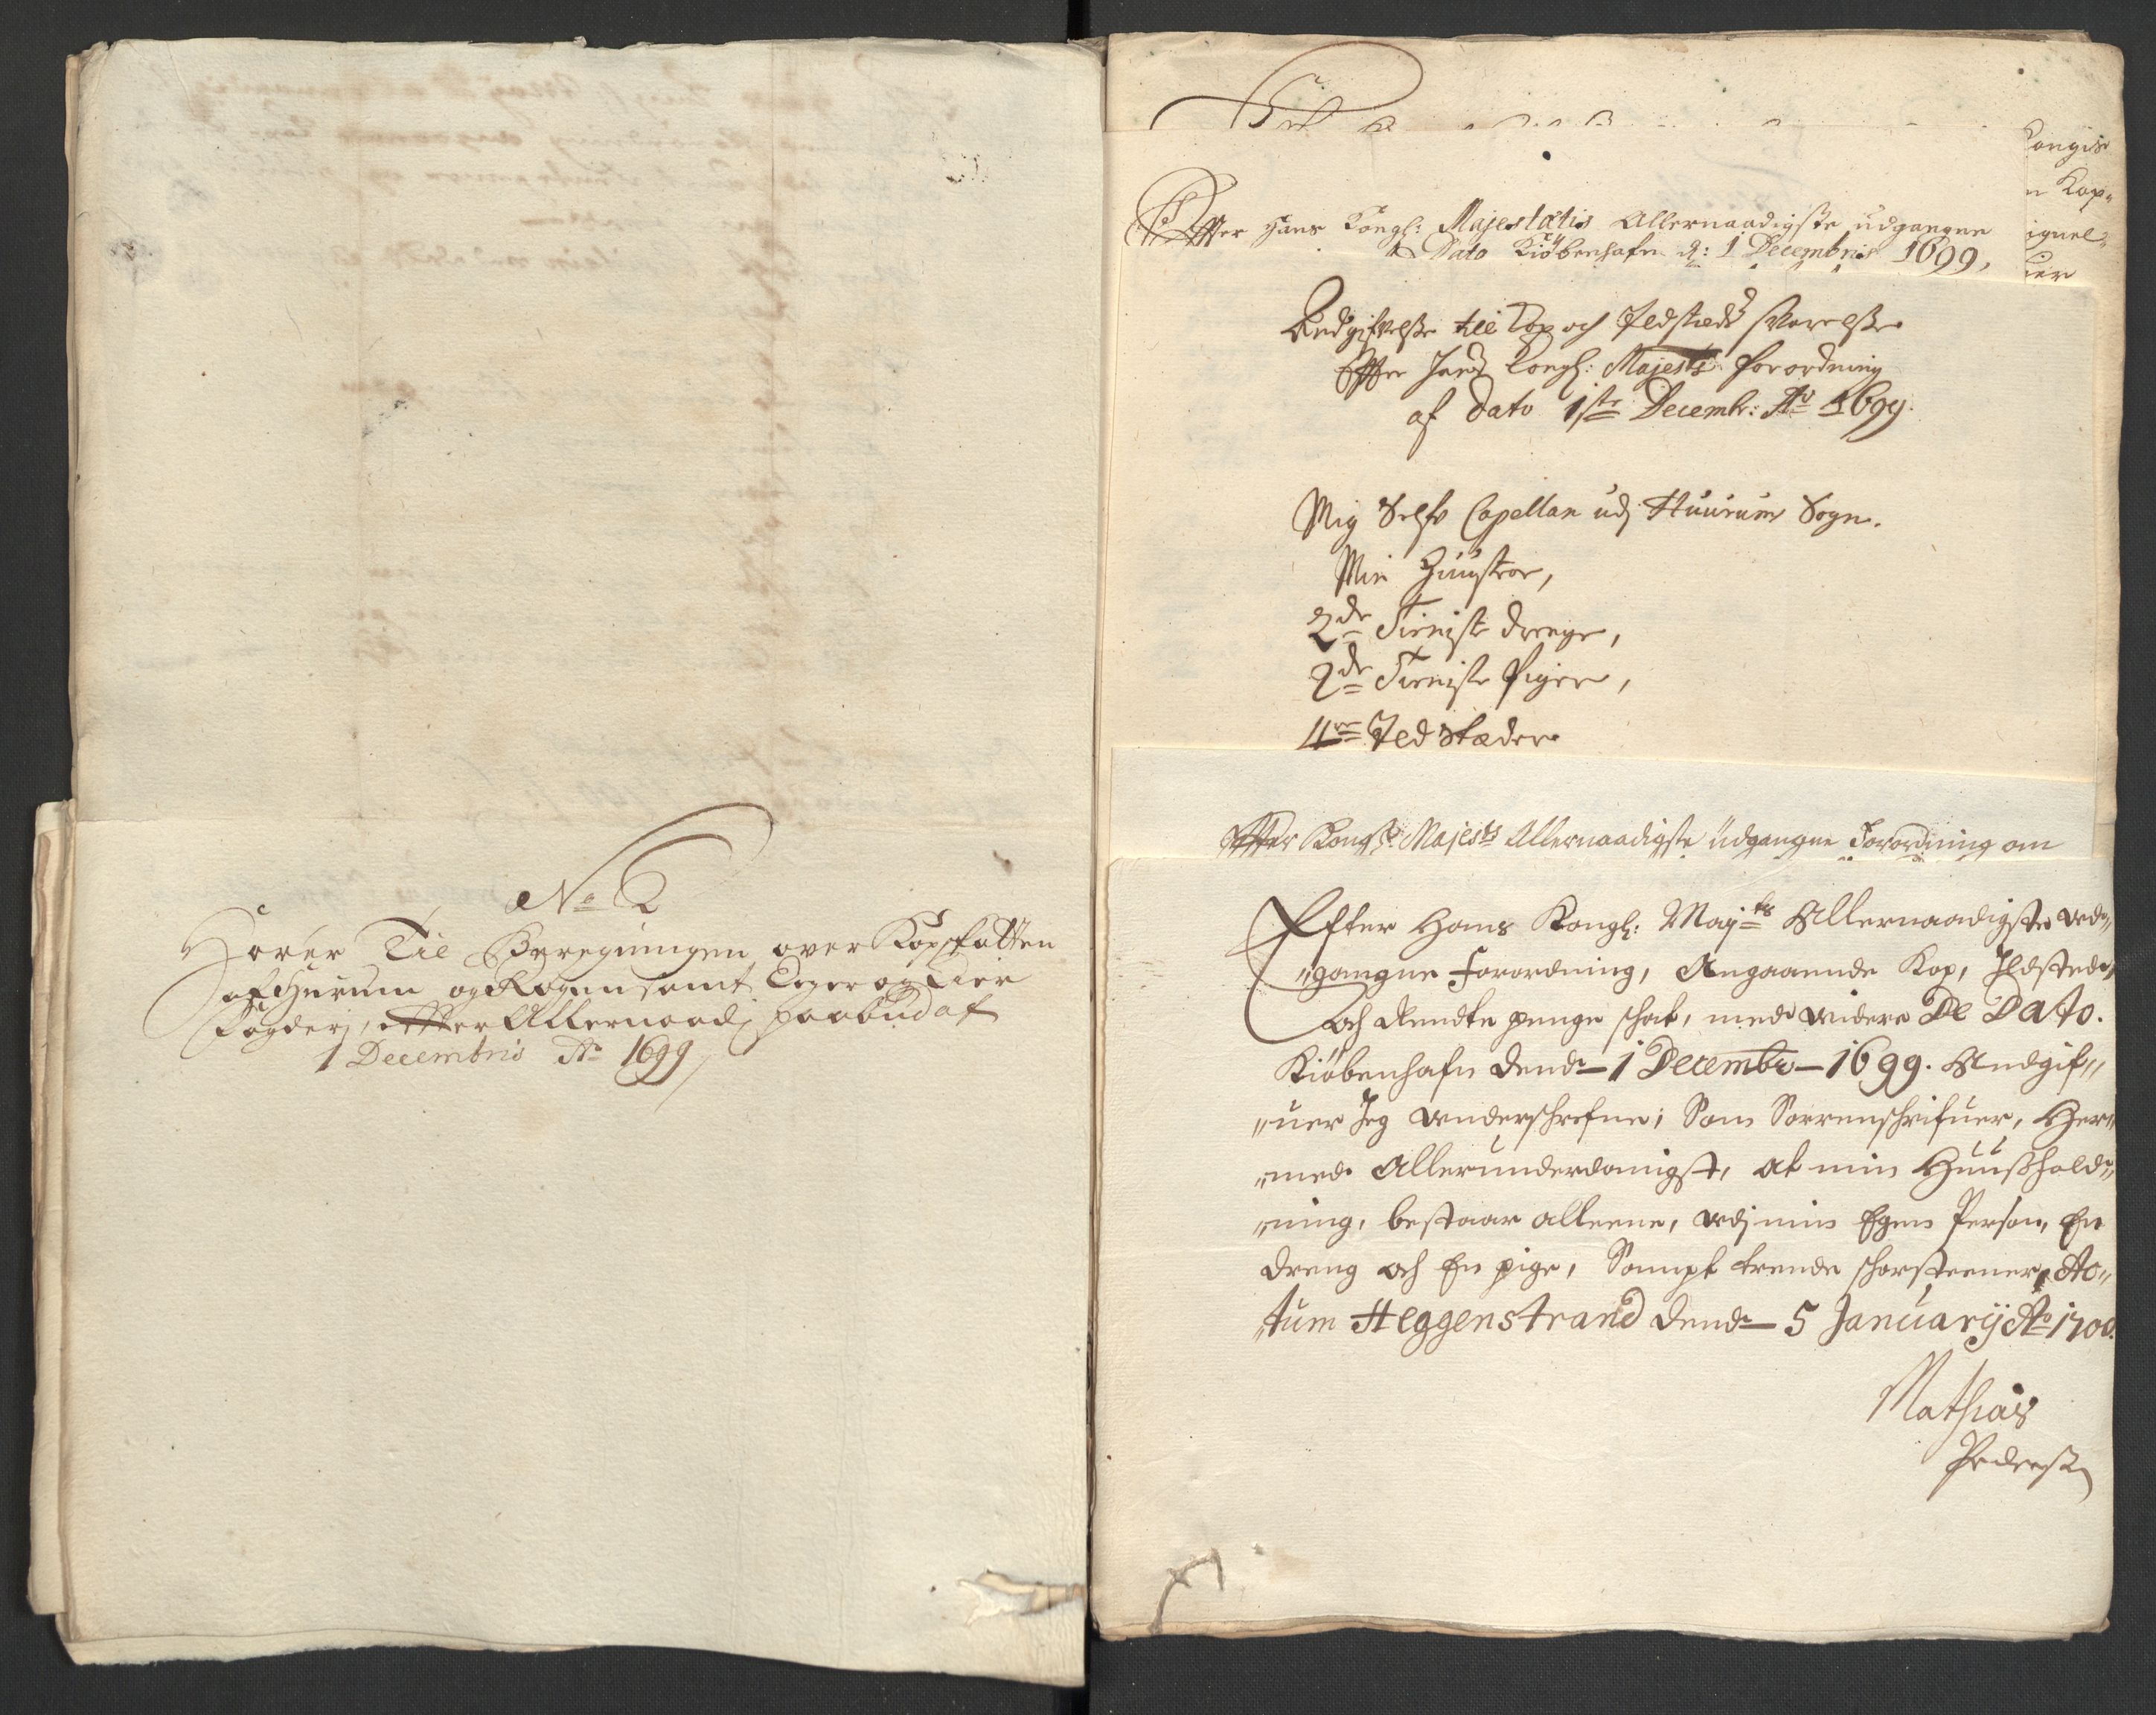 No 2
Hörer Til Beregningen over Kopskatten
af Hurum og Røgen samt Eger og Lier
Fogderj, effter Allernaadj paabud af
1 Decembris Ao 1699
Kongis
n Kop„
ignel„
uer
Effter Hans Kongl: Majestætis Allernaadigste udgangne
Dato Kiöbenhafn d: 1 Decembris 1699,
Andgifvelsse till Kop och Ildstæds
Effter Hans Kongl: Majests forordning
af Dato 1ste Decembr: Ao 1699.
Mig Selfv Capellan udj Huurums Sogn.
Min Hüustroe,
2de Tieniste drenge,
2de Tieniste Piger,
4re Ild Stæder
Effter Kongl. Majests Allernaadigste üdgangne Forordning om
Efter Hans Kongl: Majts Allernaadigste vd„
„gangne Forordning, Angaaende Kop, Ildsted„
och Rendte penge schat, med videre De Dato.
Kiöbenhafn dend 1 Decembr 1699. Andgif„
„uer Jeg vnderschrefne; Som Sorrenschrifuer, Her„
„med Allerunderdanigst, at min Huusshold„
„ning, bestaar alleene, vdj min Egen Person, En
dreng och En pige, Sampt trende schorsteener, Ac„
„tum Heggenstrand dend 5 Januarij Ao 1700.
Mathias
Pedersen